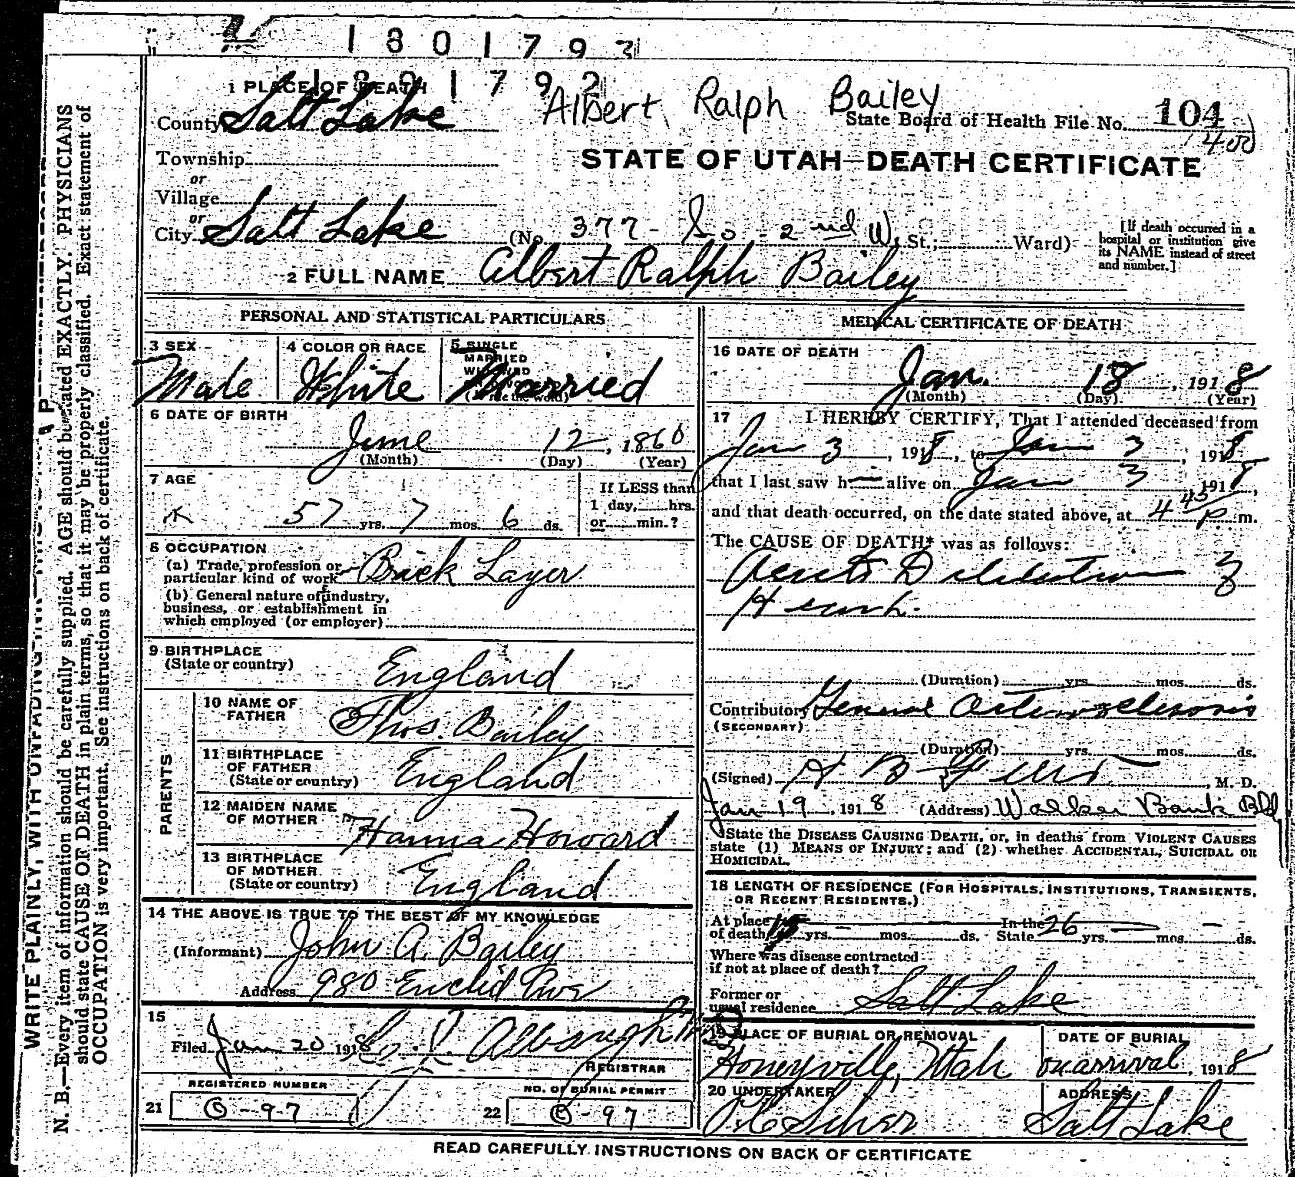 1801793
1801792
1 PLACE OF DEATH
Albert Ralph Bailey
County Salt Lake
State Board of Health File No. 104
400
Township
or
STATE OF UTAH—DEATH CERTIFICATE
Village
or
City Salt Lake (No. 377 So 2nd W. St.; Ward)
[If death occurred in a hospital or institution give its NAME instead of street and number.]
2 FULL NAME Albert Ralph Bailey
PERSONAL AND STATISTICAL PARTICULARS
3 SEX
Male
4 COLOR OR RACE
White
5 SINGLE
MARRIED
Married
6 DATE OF BIRTH
June 12, 1860
(Month) (Day) (Year)
7 AGE
57 yrs. 7 mos. 6 ds.
If LESS than
1 day, hrs.
or min.?
8 OCCUPATION
(a) Trade, profession or
particular kind of work Brick Layer
(b) General nature of industry,
business, or establishment in
which employed (or employer)
9 BIRTHPLACE
(State or country) England
PARENTS
10 NAME OF
FATHER Thos. Bailey
11 BIRTHPLACE
OF FATHER
(State or country) England
12 MAIDEN NAME
OF MOTHER Hanna Howard
13 BIRTHPLACE
OF MOTHER
(State or country) England
14 THE ABOVE IS TRUE TO THE BEST OF MY KNOWLEDGE
(Informant) John A. Bailey
Address 980 Euclid Ave
15
Filed Jan 20 1918
REGISTRAR
REGISTERED NUMBER
21 -97
NO. OF BURIAL PERMIT
22 -97
MEDICAL CERTIFICATE OF DEATH
16 DATE OF DEATH
Jan. 18, 1918
(Month) (Day) (Year)
17 I HEREBY CERTIFY, That I attended deceased from
Jan 3, 1918, to Jan 3, 1918
that I last saw h alive on Jan 3 1918,
and that death occurred, on the date stated above, at 4 45 P m.
The CAUSE OF DEATH* was as follows:
Acute Dilatation of
Heart.
(Duration) yrs. mos. ds.
Contributory General Arteriosclerosis
(SECONDARY)
(Duration) yrs. mos. ds.
(Signed) , M. D.
Jan 19, 1918 (Address) Walker Bank Bldg
*State the DISEASE CAUSING DEATH, or, in deaths from VIOLENT CAUSES
state (1) MEANS OF INJURY; and (2) whether ACCIDENTAL, SUICIDAL OR
HOMICIDAL.
18 LENGTH OF RESIDENCE (FOR HOSPITALS, INSTITUTIONS, TRANSIENTS,
OR RECENT RESIDENTS.)
At place In the
of death yrs. mos. ds. State 26 yrs. mos. ds.
Where was disease contracted
if not at place of death?
Former or
usual residence Salt Lake
PLACE OF BURIAL OR REMOVAL
Honeyville, Utah
DATE OF BURIAL
on arrival, 1918
20 UNDERTAKER
ADDRESS
Salt Lake
READ CAREFULLY INSTRUCTIONS ON BACK OF CERTIFICATE
WRITE PLAINLY, WITH UNFADING INK
N. B.—Every item of information should be carefully supplied. AGE should be stated EXACTLY. PHYSICIANS
should state CAUSE OF DEATH in plain terms, so that it may be properly classified. Exact statement of
OCCUPATION is very important. See instructions on back of certificate.